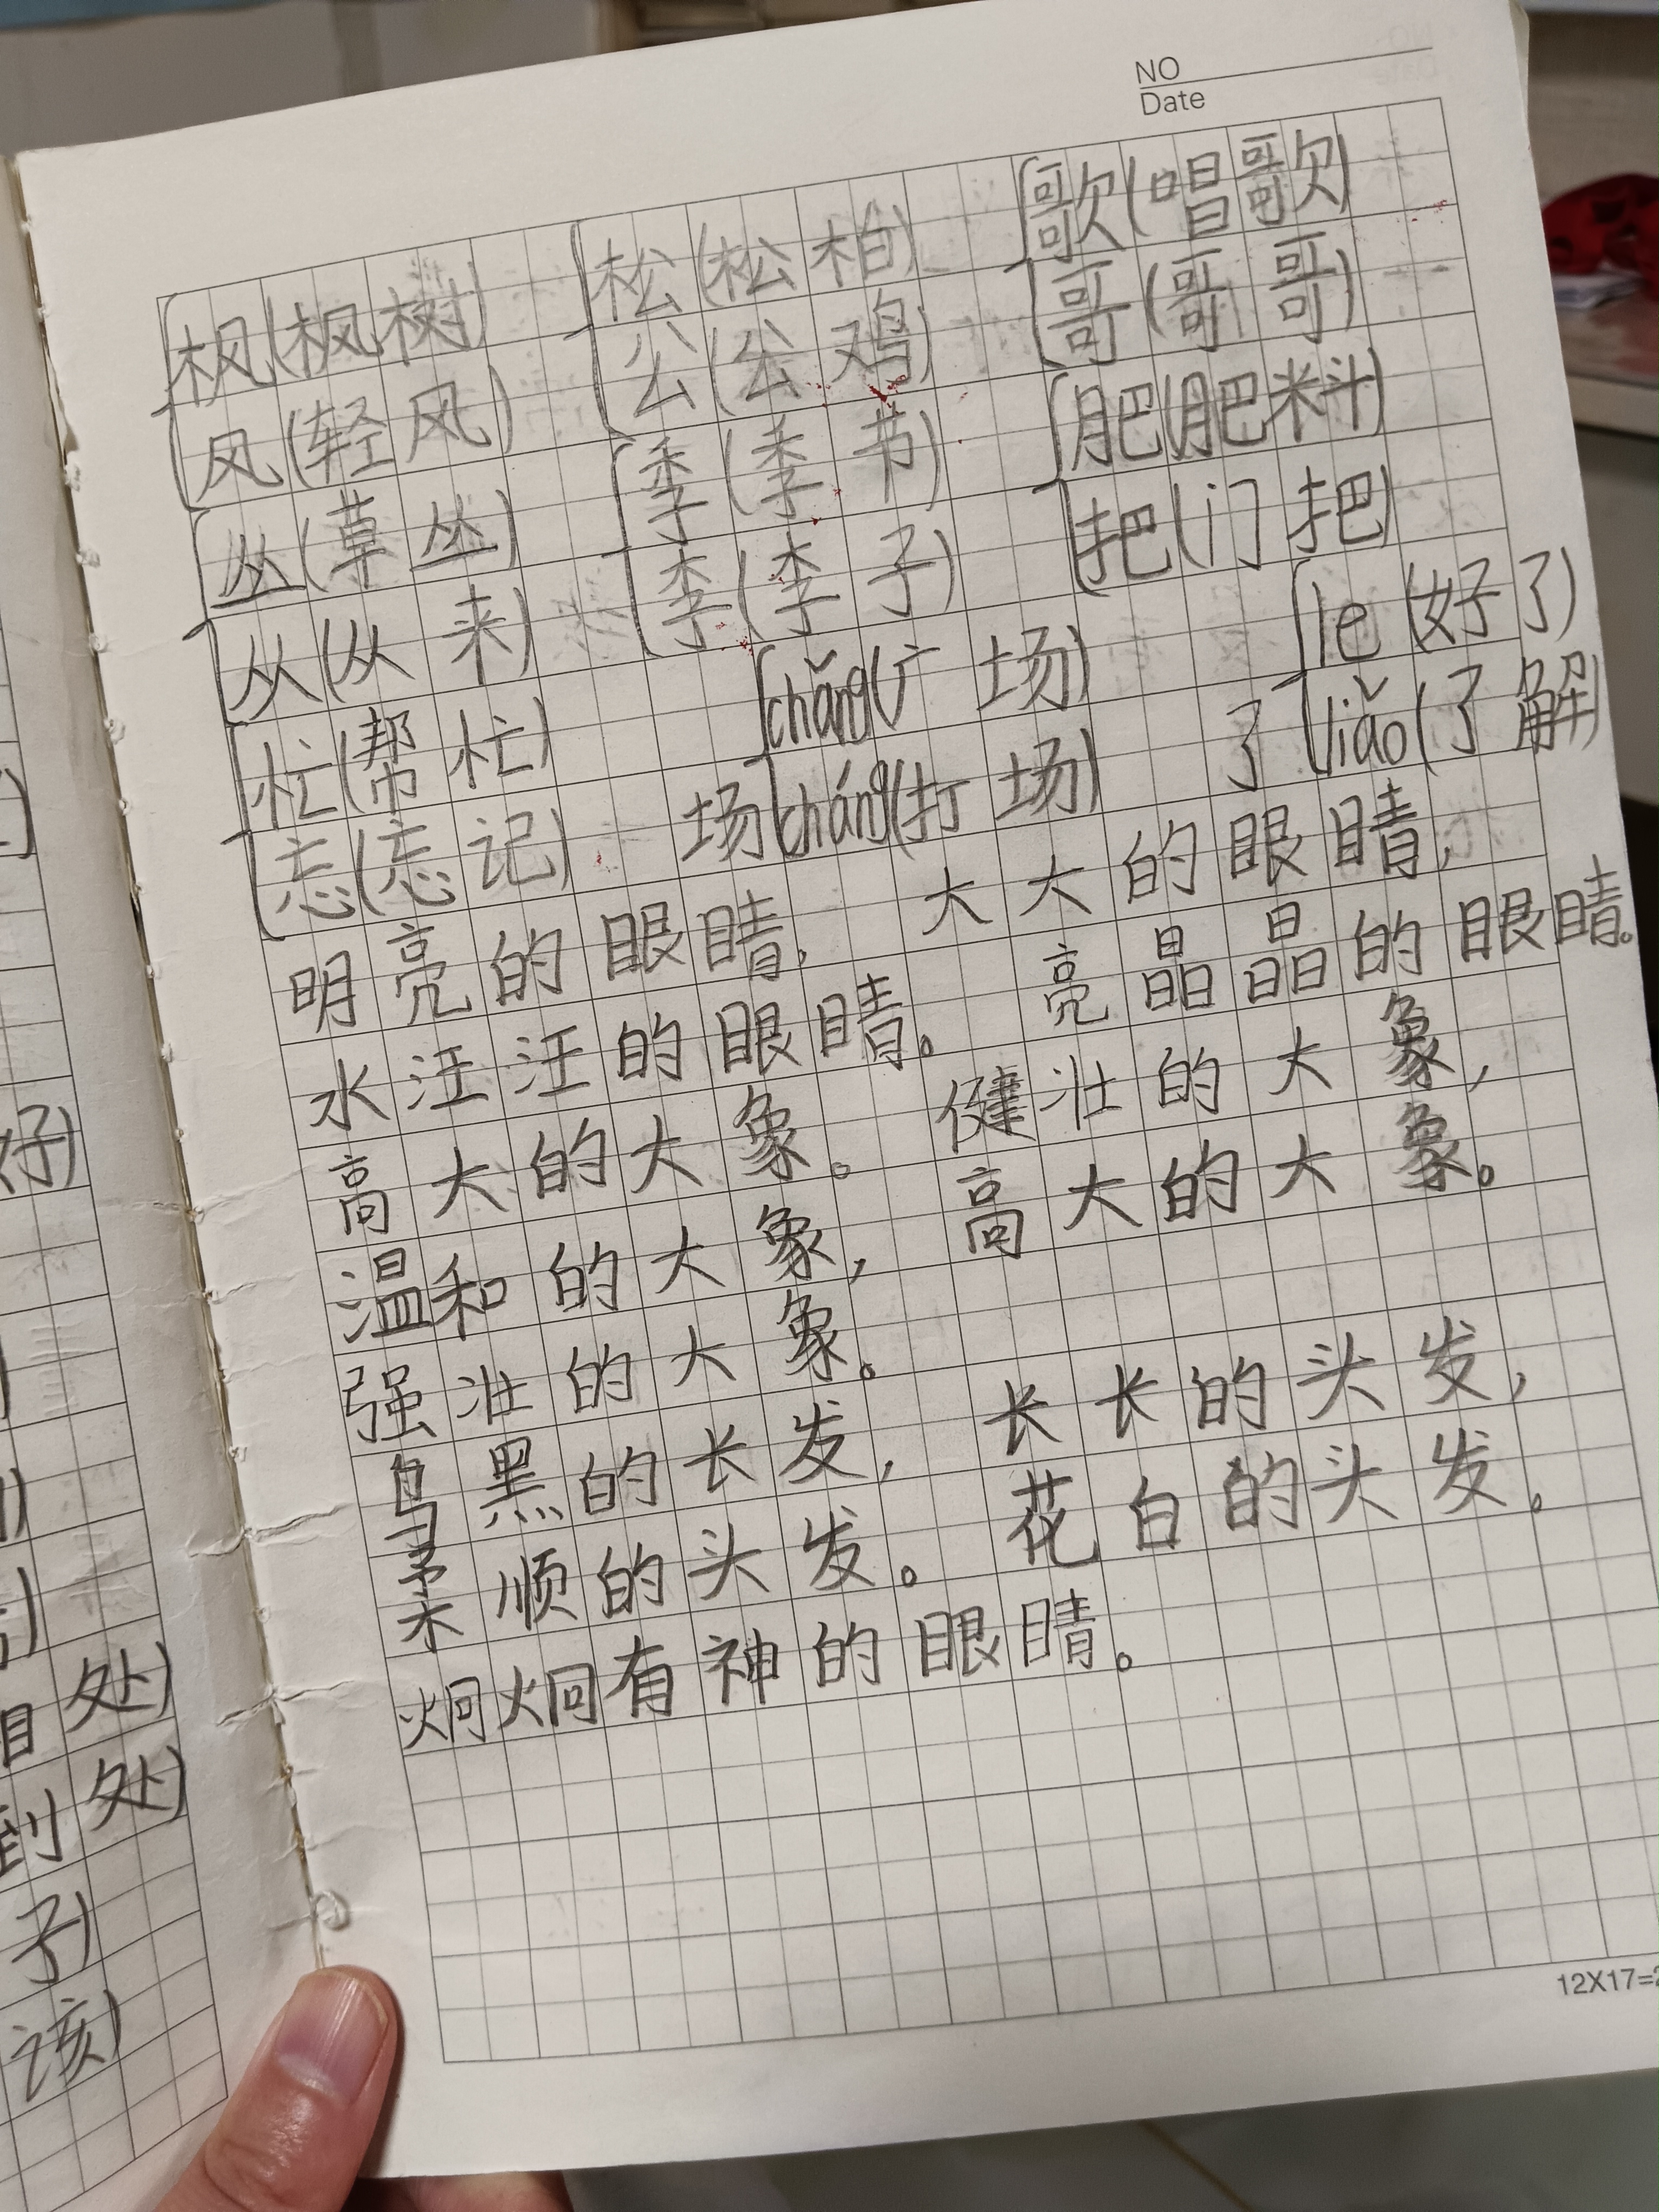 NO
Date
枫(枫树) 松(松柏) 歌(唱歌)
风(轻风) 公(公鸡) 哥(哥哥)
丛(草丛) 季(季节) 肥(肥料)
从(从来) 李(李子) 把(门把)
忙(帮忙) chǎng(广场) le(好了)
忘(忘记) 场 cháng(打场) 了 liǎo(了解)
明亮的眼睛, 大大的眼睛,
水汪汪的眼睛。 亮晶晶的眼睛。
高大的大象。 健壮的大象,
温和的大象, 高大的大象。
强壮的大象。
乌黑的长发, 长长的头发,
柔顺的头发。 花白的头发。
炯炯有神的眼睛。
好)
处)
到处)
子)
该)